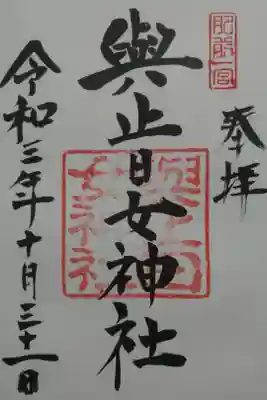 肥前一宮
奉拝
與止日女神社
令和三年十月三十一日